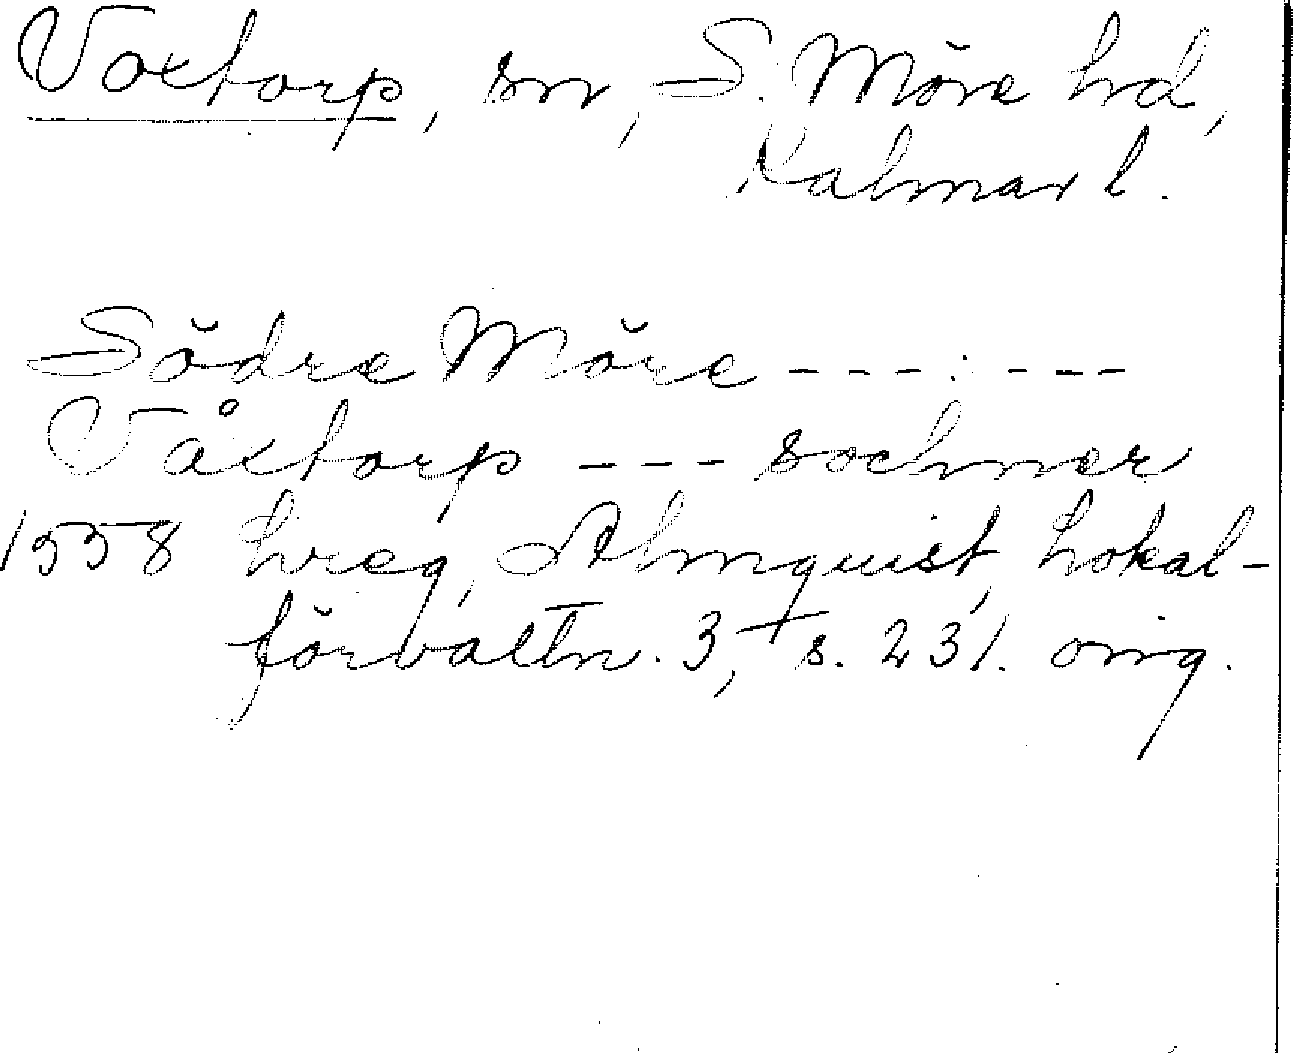 Voxtorp, sn, S. Möre hd,
Kalmar l.
Södre Möre ---:---
Våxtorp --- sochner
1558 hreg, Almquist, Lokal-
förvaltn. 3, s. 231. orig.